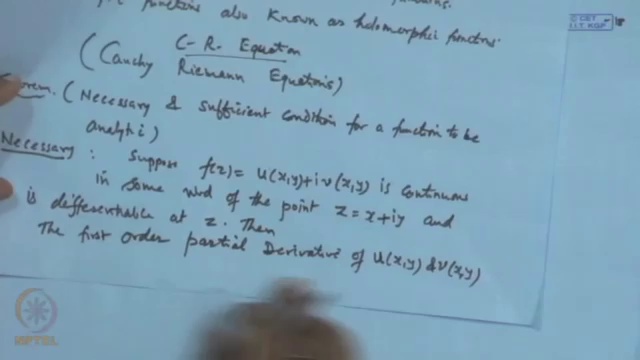 functions also known as holomorphic functions.
C-R. Equation
(Cauchy Riemann Equations)
(Necessary & sufficient condition for a function to be
analytic)
Necessary : Suppose f(z) = u(x,y)+iv(x,y) is continuous
in some nbd of the point z = x+iy and
is differentiable at z. Then
The first order partial Derivative of u(x,y) & v(x,y)
© CET
I.I.T. KGP
NPTEL